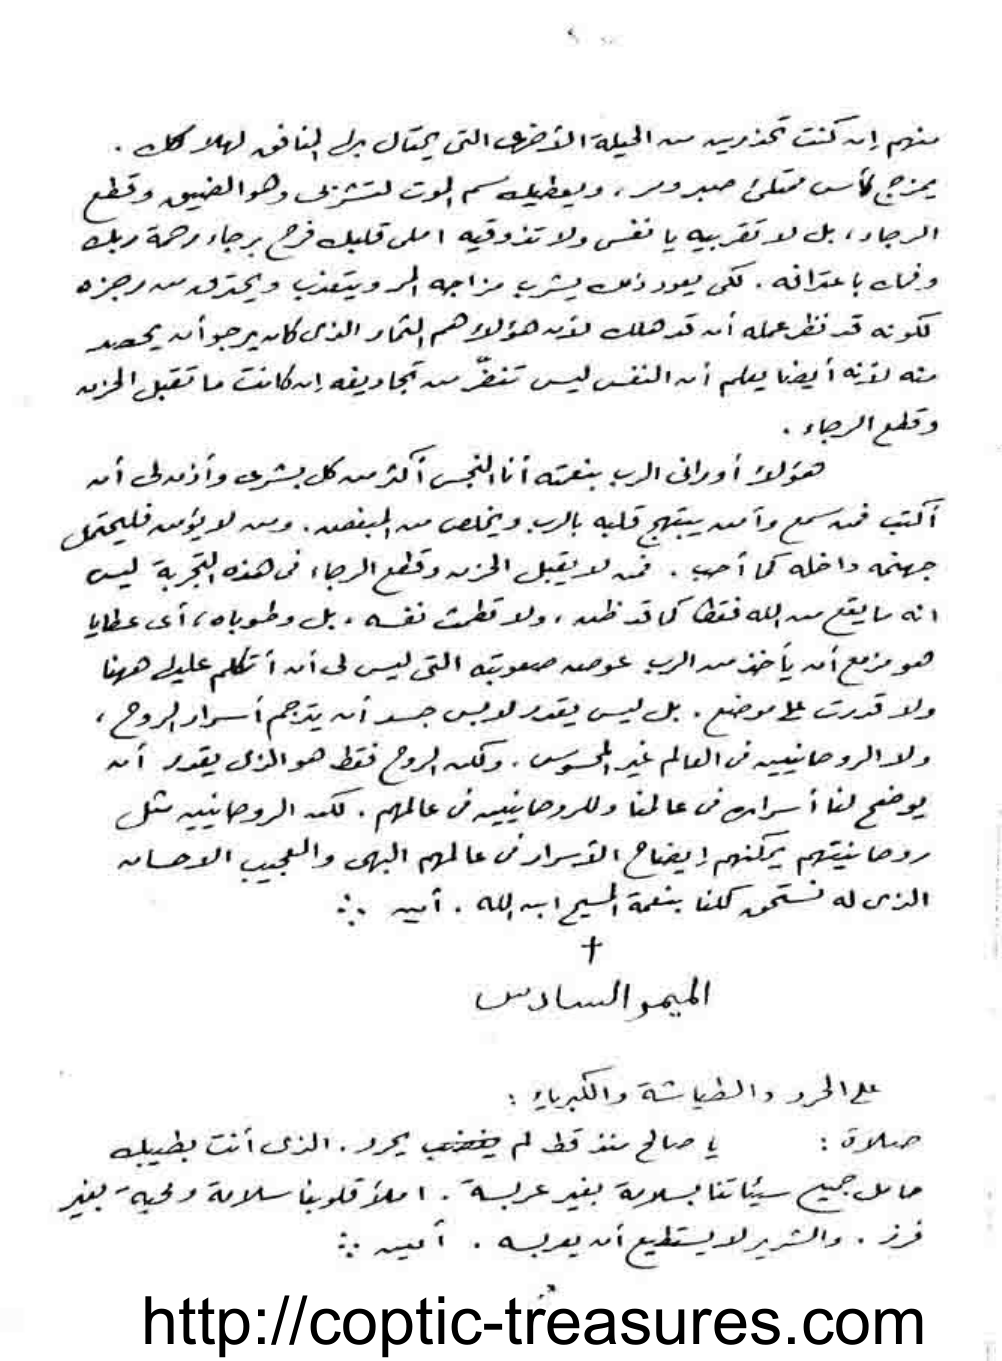 منهم إن كنت تحذرين من الحيلة الأخرى التى يحتال بها المنافق لهلاكك .
يمزج كأس ممتلئ صبر ومر ، ويعطيك سم الموت لتشربى وهو الضيق وقطع
الرجاء ، بل لا تقربيه يا نفس ولا تذوقيه املى قلبك فرح برجاء رحمة ربك
وفمك باعترافه . لكى يعود ذلك يشرب مزاجه المر ويتعذب ويحترق من رجزه
لكونه قد نظر عمله أن قد هلك لأن هؤلاء هم الثمار الذى كان يرجو أن يحصد
منه لأنه أيضا يعلم أن النفس ليس تنفرّ من تجاديفه إن كانت ما تقبل الحزن
وقطع الرجاء .
هؤلاء أورانى الرب بنعمته أنا النجس أكثر من كل بشرى وأذن لى أن
أكتب فمن سمع وآمن يبتهج قلبه بالرب ويخلص من المبغض . ومن لا يؤمن فليحتمل
جهنمه داخله كما أحب . فمن لا يقبل الحزن وقطع الرجاء فى هذه التجربة ليس
انه ما يقع من الله فقط كما قد ظن ، ولا قطمث نفسه ، بل وطوباه ، أى عطايا
هو مزمع أن يأخذ من الرب عوض صعوبته التى ليس لى أن أتكلم عليها ههنا
ولا قدرت على موضع . بل ليس يقدر لابس جسد أن يترجم أسرار الروح ،
ولا الروحانيين فى العالم غير المحسوس . ولكن الروح فقط هو الذى يقدر أن
يوضح لنا أسراره فى عالمنا وللروحانيين فى عالمهم . لكن الروحانيين مثل
روحانيتهم يمكنهم إيضاح الأسرار فى عالمهم البهى والعجيب الاحسان
الذى له نستحق كلنا بنعمة المسيح ابن الله . أمين ؞
†
الميمر السادس
على الحرد والطياشة والكبرياء :
صلاة : يا صالح منذ قط لم يغضب يحرد . الذى أنت بطيبك
حامل جميع سيئاتنا بسلامة بغير عربسة . املأ قلوبنا سلامة ومحبة بغير
فرز . والشرير لا يستطيع أن يعربسه . أمين ؞
http://coptic-treasures.com